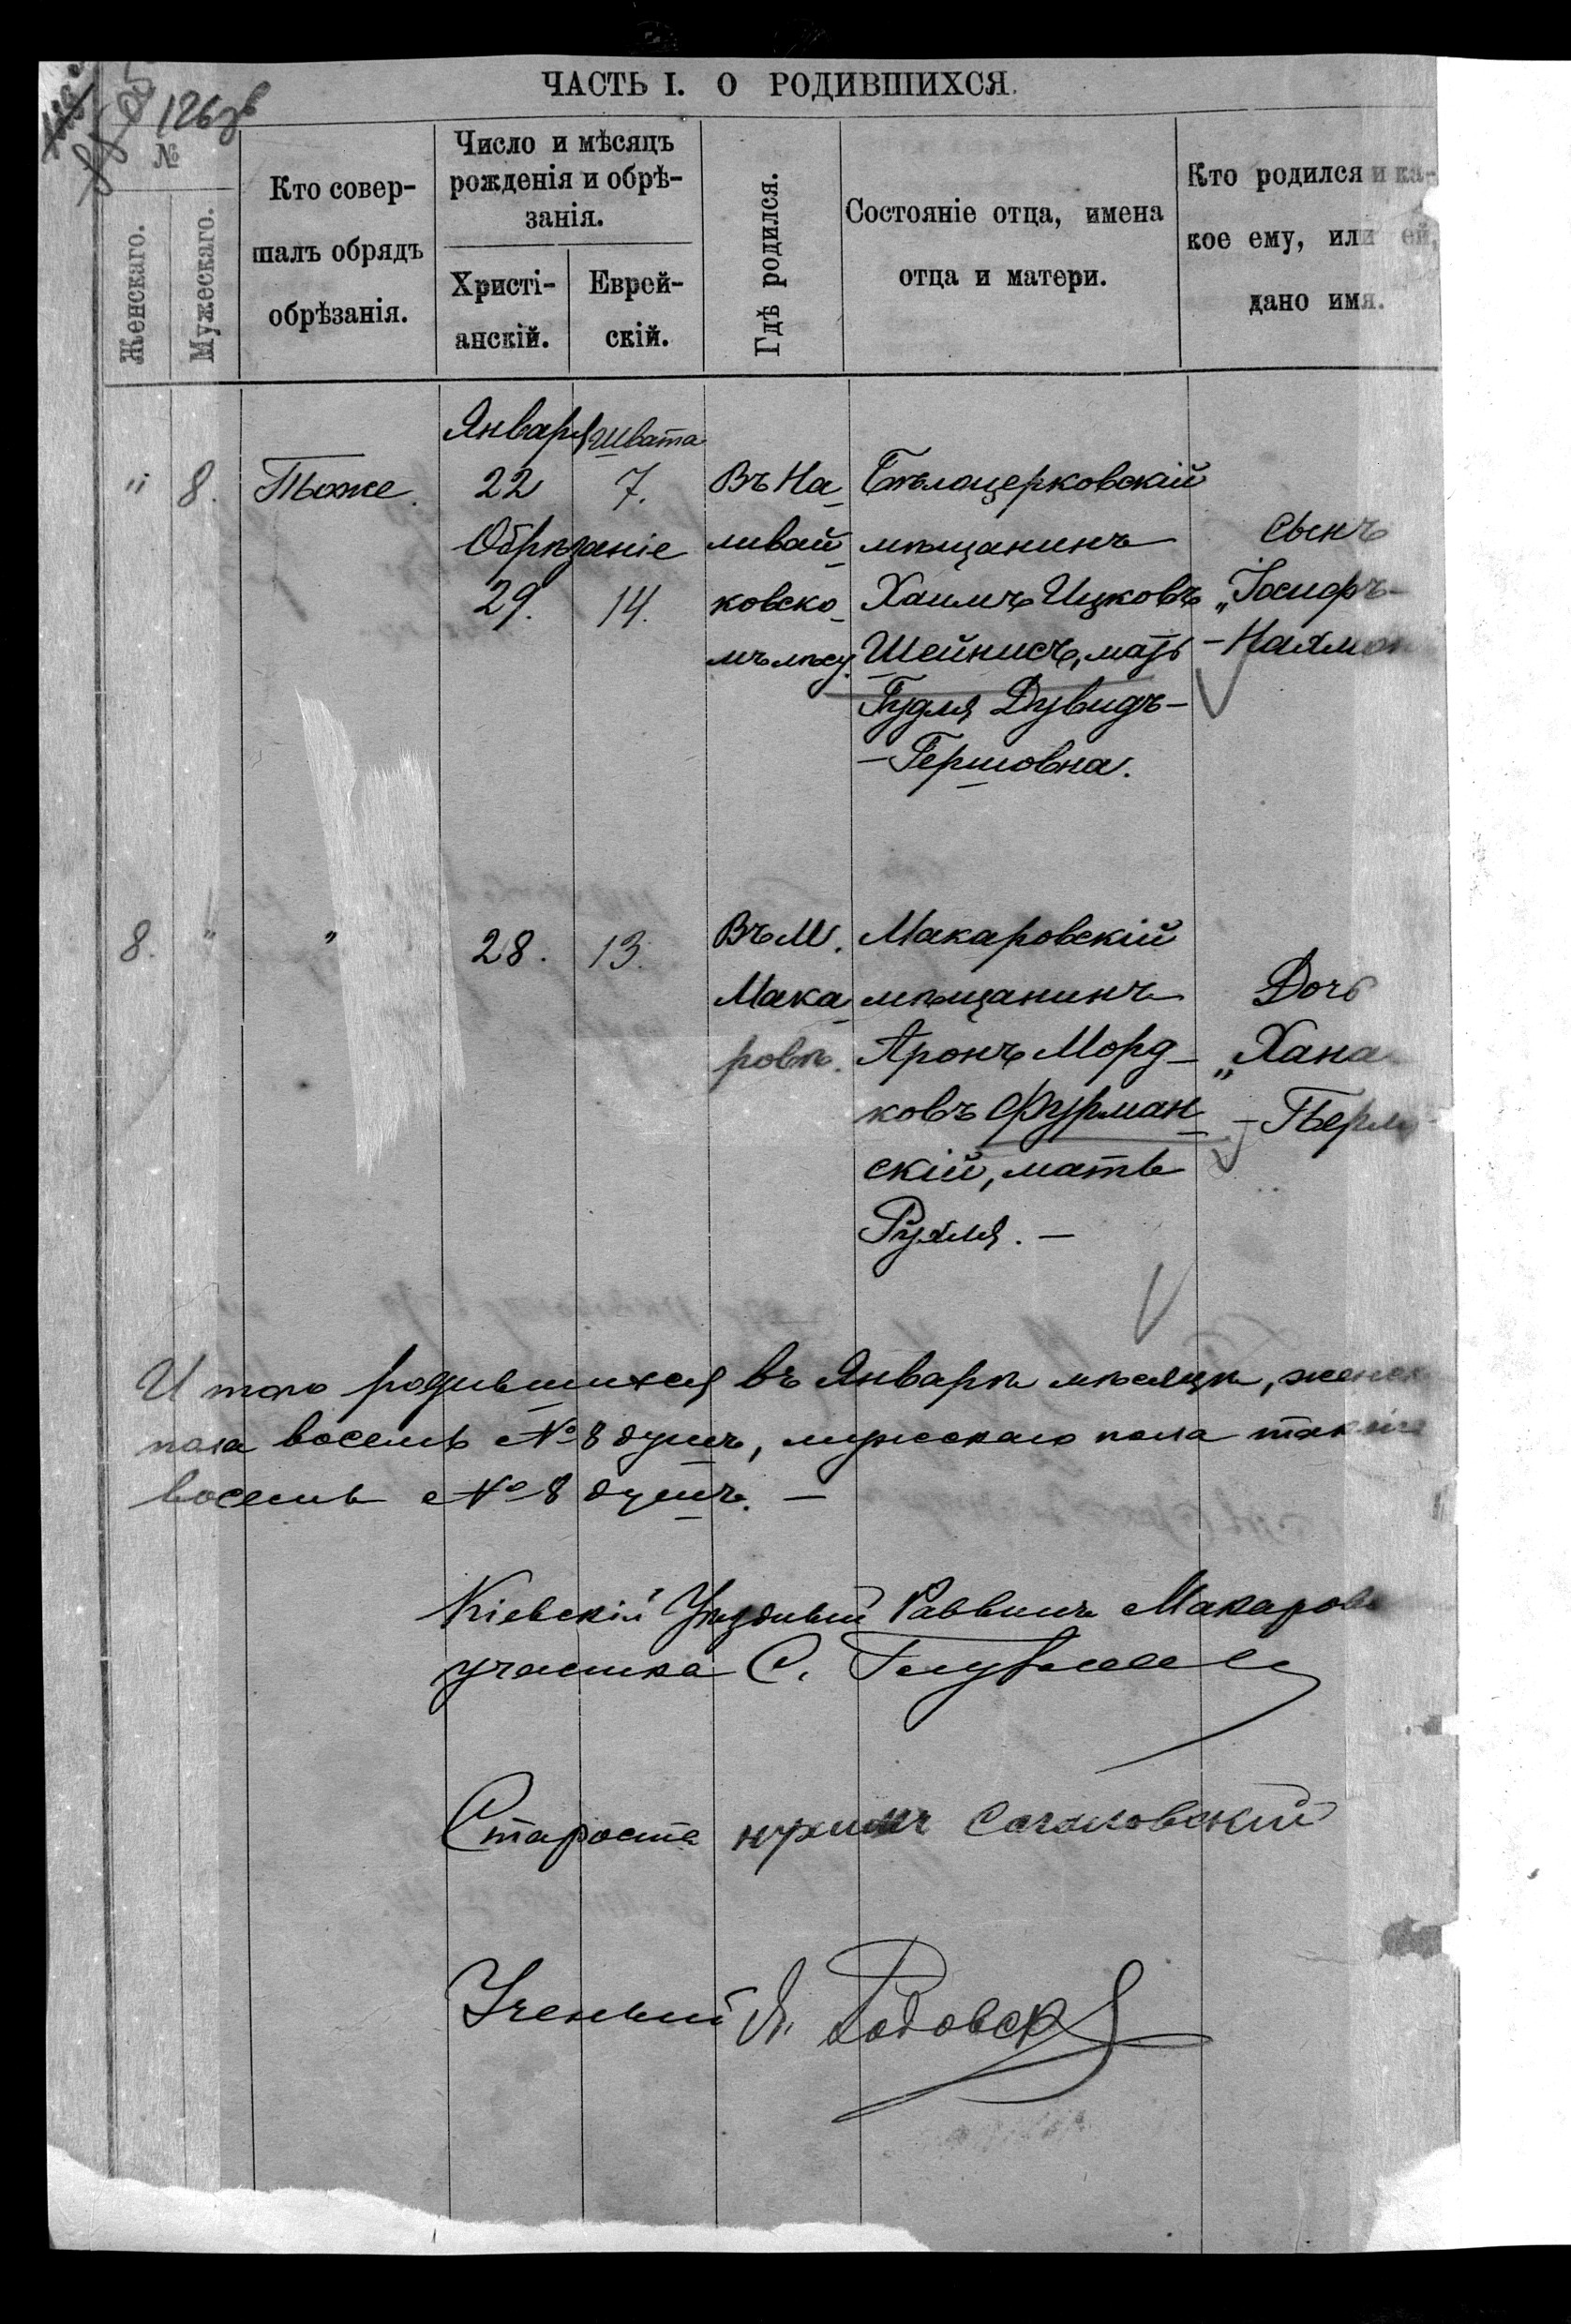 126 зв
ЧАСТЬ I. О РОДИВШИХСЯ.
№
Женскаго.
Мужескаго.
Кто совер-
шалъ обрядъ
обрѣзанія.
Число и мѣсяцъ
рожденія и обрѣ-
занія.
Христі-
анскій.
Еврей-
скій.
Гдѣ родился.
Состояніе отца, имена
отца и матери.
Кто родился и ка-
кое ему, или ей,
дано имя.
Января
Швата
"
8.
Тъоже
22
7.
Обрѣзаніе
29.
14.
Въ На-
ливай-
ковско-
мъ лѣсу.
Бѣлоцерковскій
мѣщанинъ
Хаимъ Ицковъ
Шейнисъ, мать
Гудля Дувидъ-
-Гершовна.
сынъ
"Іосифъ-
-Нахман
8.
"
"
28.
13.
Въ М.
Мака-
ровѣ.
Макаровскій
мѣщанинъ
Аронъ Морд-
ковъ Фурман-
скій, мать
Рухля. —
Дочь
"Хана
-Перля
Итого родившихся въ Январѣ мѣсяцѣ, женск
пола восемь № 8 душъ, мужскаго пола также
восемь № 8 душъ. —
Кіевскій Уѣздный Раввинъ Макаровс
участка С.
Староста
Ученый